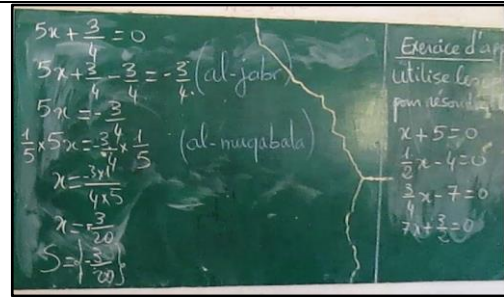 5x + 3/4 = 0
5x + 3/4 - 3/4 = -3/4 (al-jabr)
5x = -3/4
1/5 × 5x = -3/4 × 1/5 (al-muqabala)
x = -3×1/4×5
x = -3/20
S = {-3/20}
Exercice d'
utilise les
pour résoudre
x + 5 = 0
1/2 x - 4 = 0
3/4 x - 7 = 0
7x + 3/2 = 0